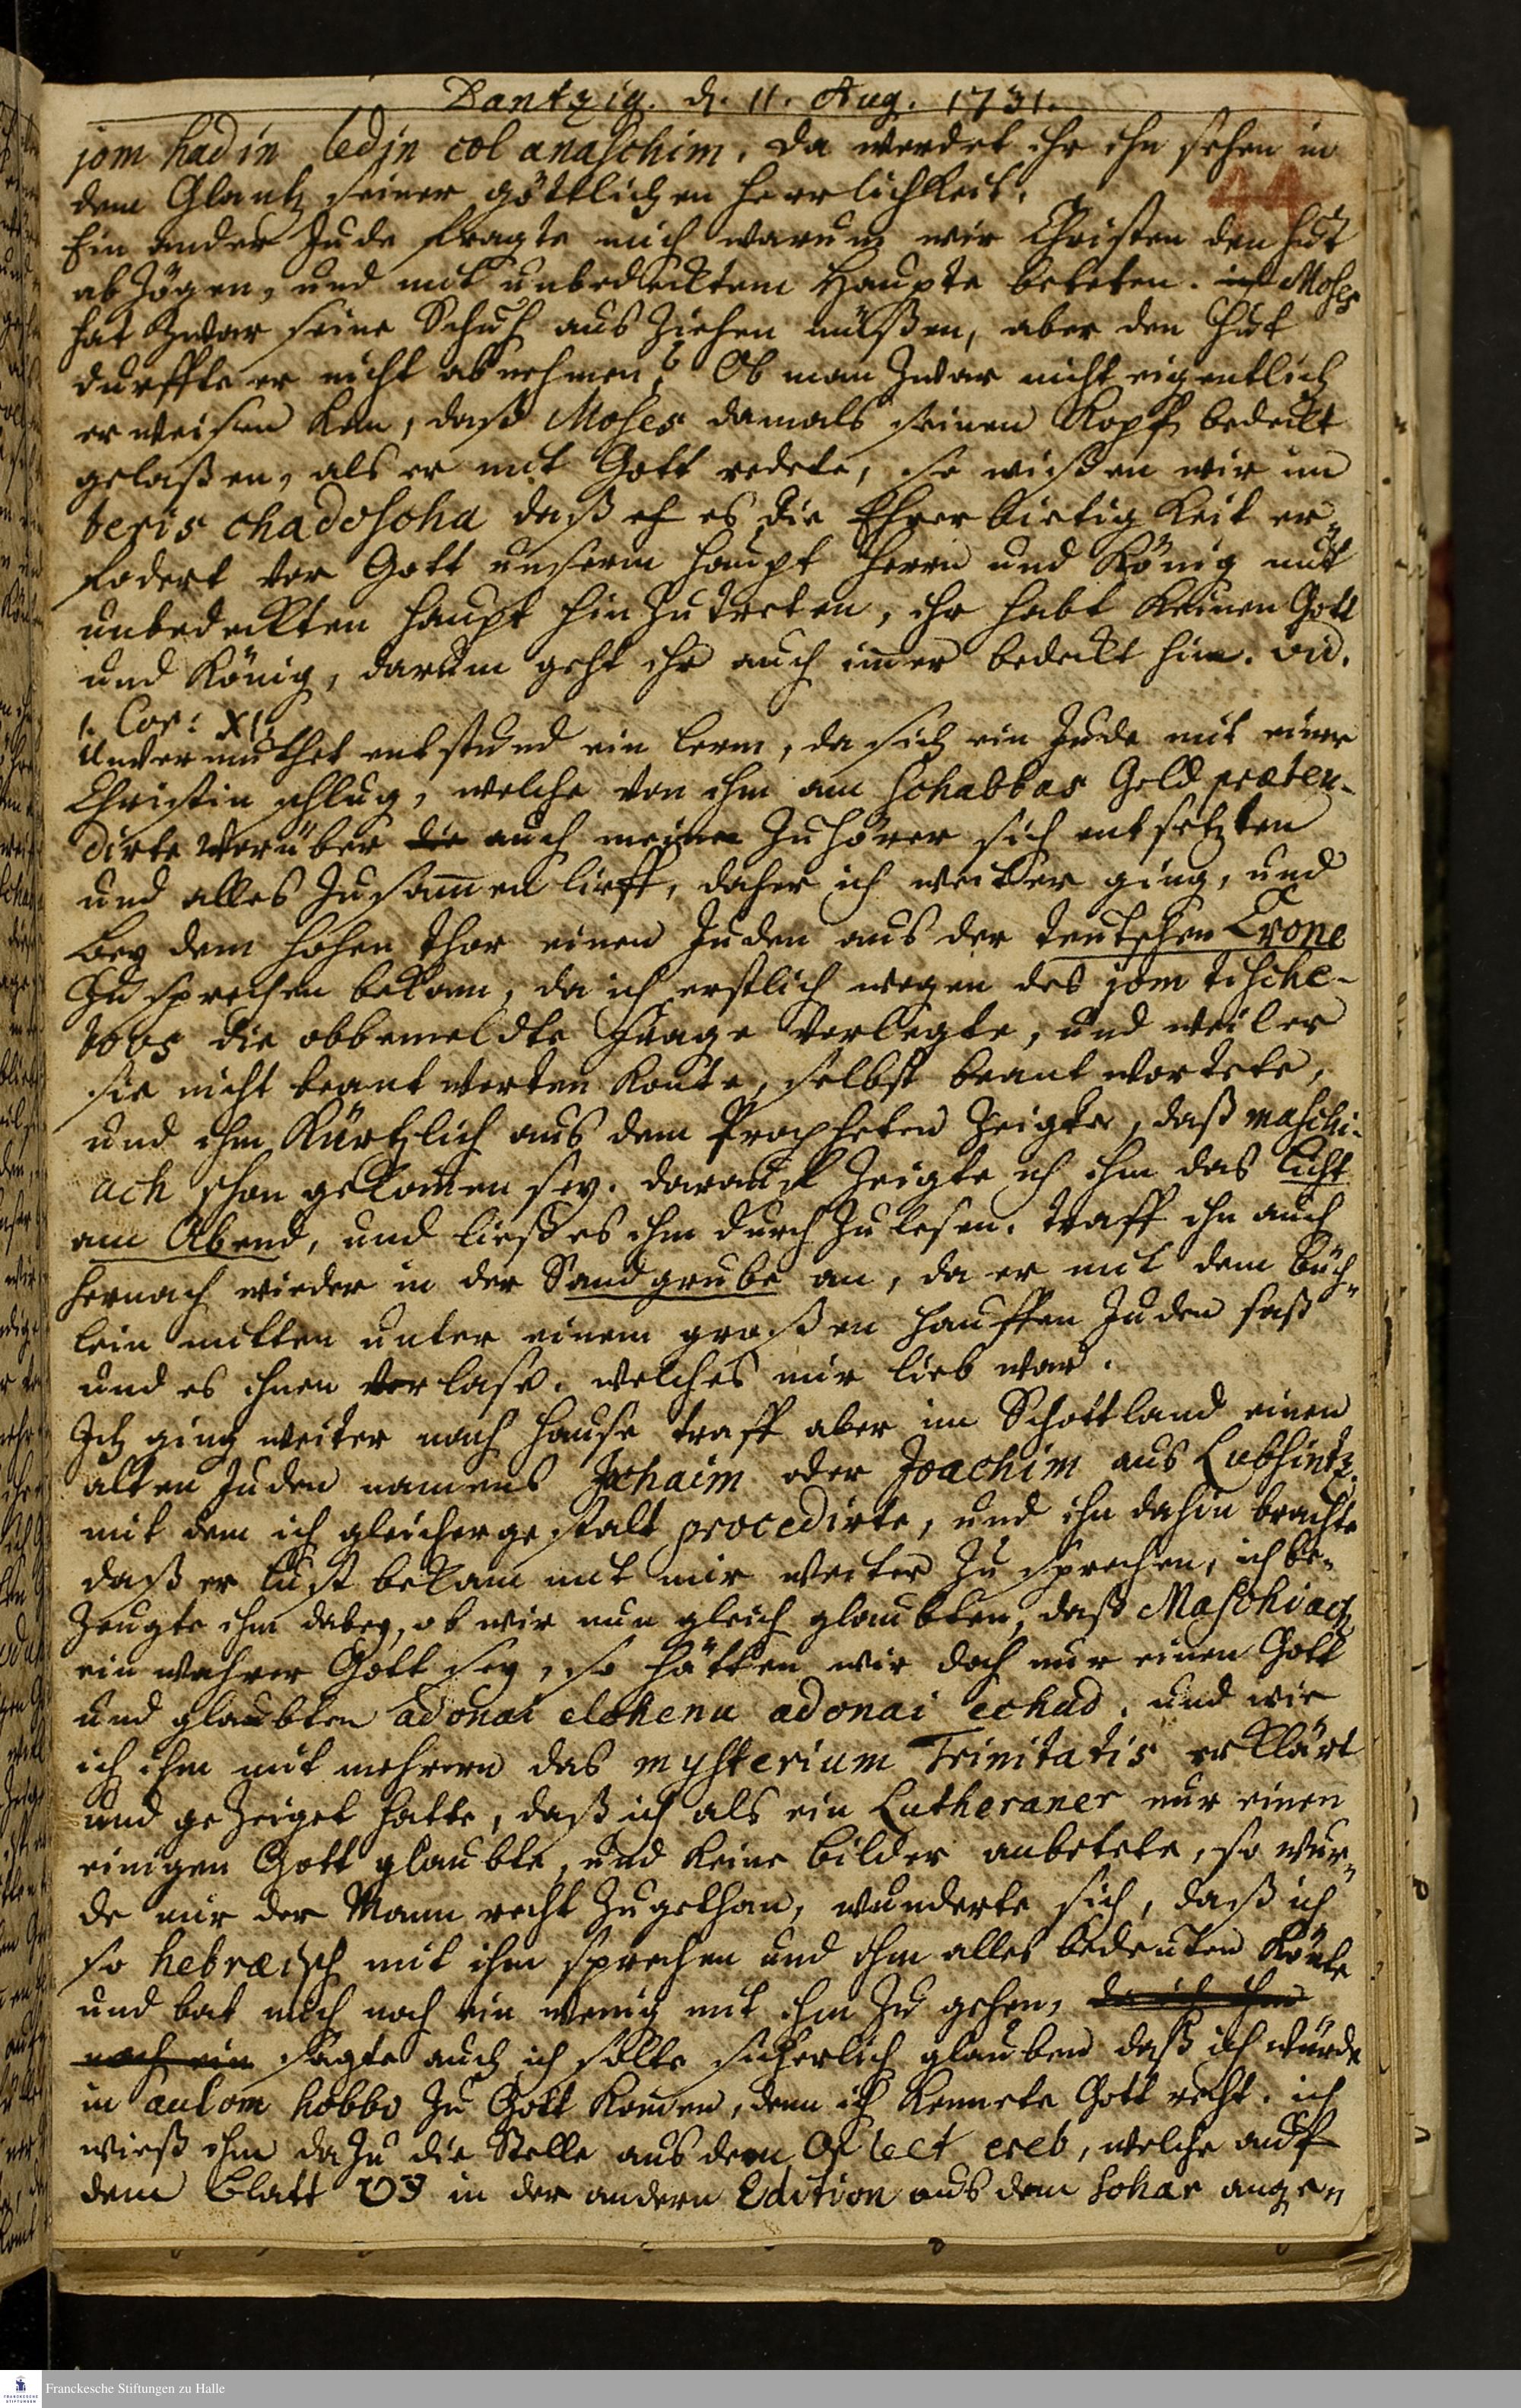 Dantzig. d. 11. Aug. 1731.
44
jom hadin ledin col anaschim. da werdet ihr ihn sehen in
dem Glantz seiner göttlichen Herrlichkeit.
Ein ander Jude fragte mich warum wir Christen den Hut
abzögen, und mit unbedecktem Haupte beteten. Moses
hat zwar seine Schuh ausziehen müßen, aber den Hut
durffte er nicht abnehmen? Ob man zwar nicht eigentlich
erweisen kan, daß Moses damals seinen Kopf bedeckt
gelaßen, als er mit Gott redete, so wißen wir im
beris chadoscha daß es die Ehrerbietigkeit er-
fodert vor Gott unserm Haupt Herrn und König mit
unbedeckten Haupt hinzutreten, ihr habt keinen Gott
und König, darum geht ihr auch immer bedeckt hin. vid.
1. Cor: XI.
Unvermuthet entstund ein lerm, da sich ein Jude mit einer
Christin schlug, welche von ihm am Schabbas Geld præten-
dirte worüber die auch meine Zuhörer sich entsetzten
und alles zusammen lieff, daher ich weiter ging, und
bey dem hohen Thor einen Juden aus der teutschen Crone
zu sprechen bekam, da ich erstlich wegen des jom tische-
bobs die obbemeldte Frage vorlegte, und weil er
sie nicht beantworten konte, selbst beantwortete,
und ihm kürtzlich aus dem Propheten zeigte, daß maschi-
ach schon gekommen sey. darauf zeigte ich ihm das Licht
am Abend, und ließ es ihm durchzulesen. traff ihn auch
hernach wieder in der Sandgrube an, da er mit dem Büch-
lein mitten unter einem großen Hauffen Juden saß
und es ihnen vorlase. welches mir lieb war.
Ich ging weiter nach Hause traff aber im Schottland einen
alten Juden namens Jochaim oder Joachim aus Lubsintz.
mit dem ich gleichergestalt procedirte, und ihn dahin brachte
daß er Lust bekam mit mir weiter zu sprechen, ich be-
zeugte ihm dabey, ob wir nun gleich glaubten, daß Maschiach
ein wahrer Gott sey, so hätten wir doch nur einen Gott
und glaubten adonai elohenu adonai echad. und wie
ich ihm mit mehrern das mysterium Trinitatis erklärt
und gezeiget hatte, daß ich als ein Lutheraner nur einen
einigen Gott glaubte, und keine Bilder anbetete, so wur-
de mir der Mann recht zugethan, wunderte sich, daß ich
so hebræisch mit ihm sprechen und ihm alles bedeuten könte
und bat mich noch ein wenig mit ihm zu gehen, da ich ihm
noch ein sagte auch ich solte sicherlich glauben daß ich würde
in aulom habbo zu Gott kommen, denn ich kennete Gott recht. ich
wieß ihm dazu die Stelle aus dem Or leet ereb, welche auf
dem Blatt in der andern Edition aus dem Sohar ange-
Franckesche Stiftungen zu Halle